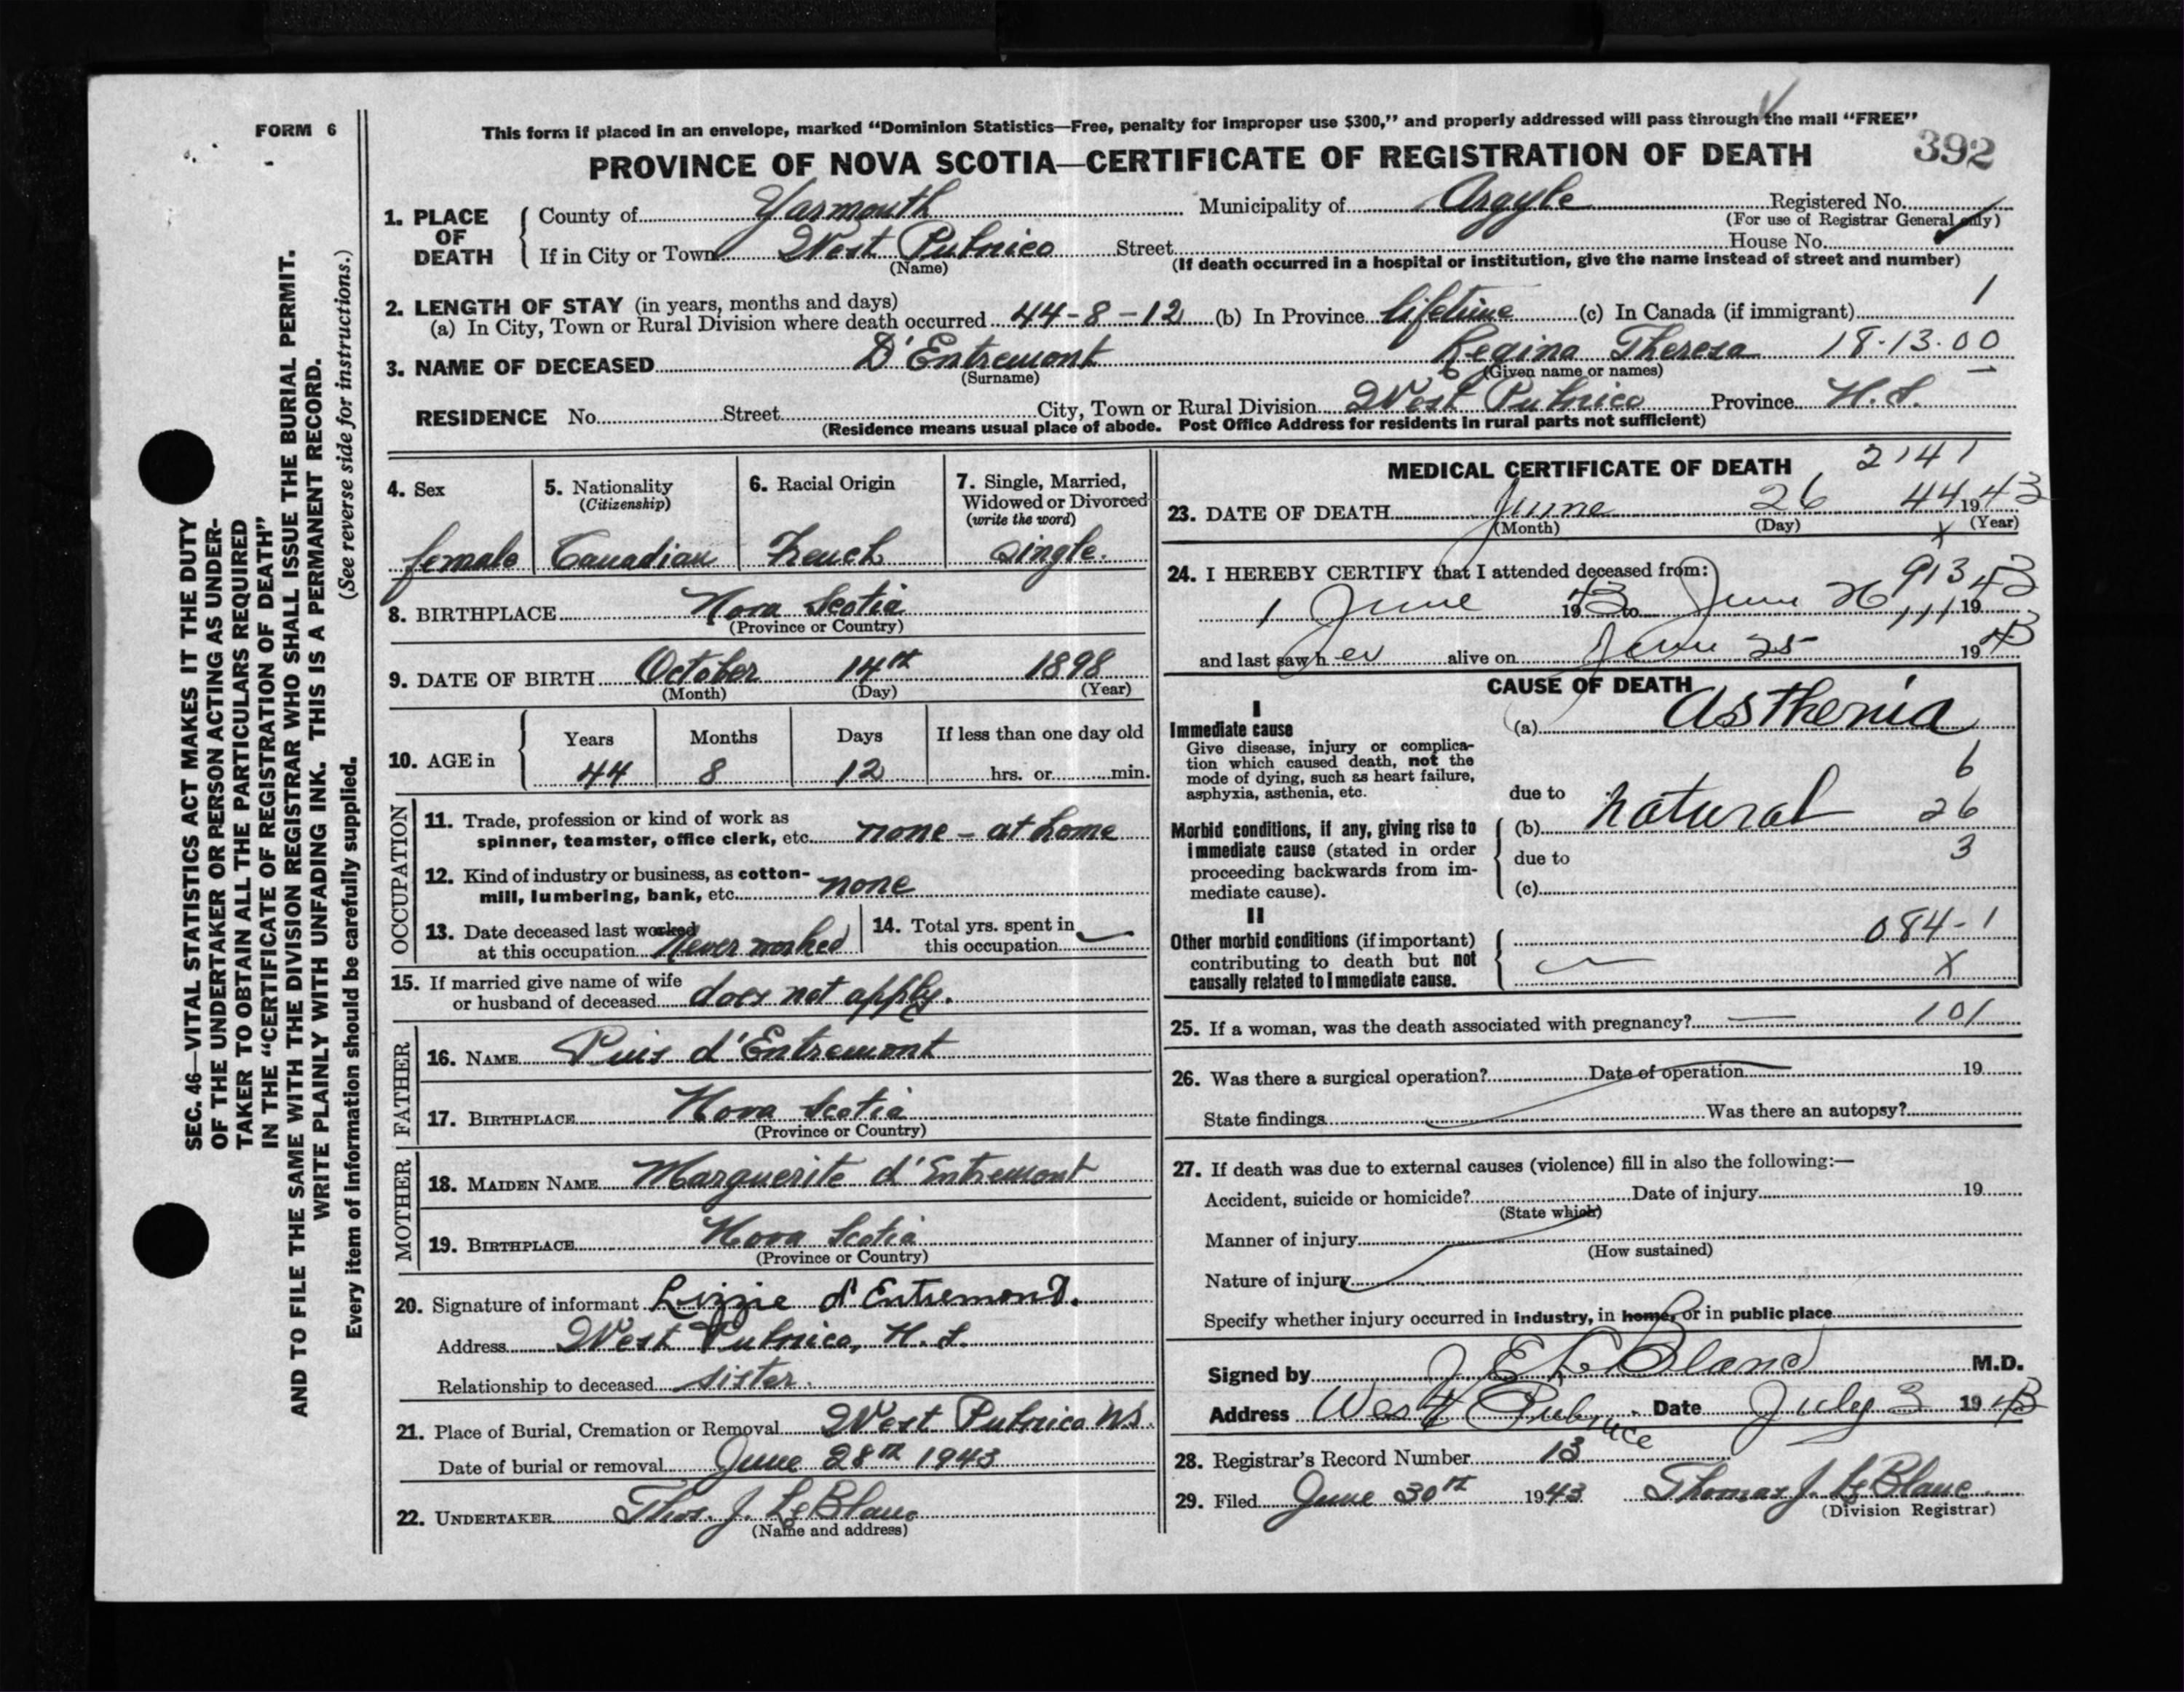 FORM 6
This form if placed in an envelope, marked "Dominion Statistics—Free, penalty for improper use $300," and properly addressed will pass through the mail "FREE"
PROVINCE OF NOVA SCOTIA—CERTIFICATE OF REGISTRATION OF DEATH 392
SEC. 46—VITAL STATISTICS ACT MAKES IT THE DUTY
OF THE UNDERTAKER OR PERSON ACTING AS UNDER-
TAKER TO OBTAIN ALL THE PARTICULARS REQUIRED
IN THE "CERTIFICATE OF REGISTRATION OF DEATH"
AND TO FILE THE SAME WITH THE DIVISION REGISTRAR WHO SHALL ISSUE THE BURIAL PERMIT.
WRITE PLAINLY WITH UNFADING INK. THIS IS A PERMANENT RECORD.
(See reverse side for instructions.)
Every item of information should be carefully supplied.
1. PLACE OF DEATH County of Yarmouth Municipality of Argyle Registered No.
(For use of Registrar General only)
If in City or Town West Pubnico Street House No.
(Name) (If death occurred in a hospital or institution, give the name instead of street and number)
2. LENGTH OF STAY (in years, months and days) 1
(a) In City, Town or Rural Division where death occurred 44-8-12 (b) In Province lifetime (c) In Canada (if immigrant)
3. NAME OF DECEASED D'Entremont Regina Theresa 18-13-00
(Surname) 6 (Given name or names)
RESIDENCE No. Street City, Town or Rural Division West Pubnico Province N.S.
(Residence means usual place of abode. Post Office Address for residents in rural parts not sufficient)
4. Sex 5. Nationality 6. Racial Origin 7. Single, Married,
(Citizenship) Widowed or Divorced
(write the word)
female Canadian French single.
8. BIRTHPLACE Nova Scotia
(Province or Country)
9. DATE OF BIRTH October 14th 1898
(Month) (Day) (Year)
10. AGE in Years Months Days If less than one day old
44 8 12 hrs. or min.
OCCUPATION
11. Trade, profession or kind of work as
spinner, teamster, office clerk, etc. none - at home
12. Kind of industry or business, as cotton-
mill, lumbering, bank, etc. none
13. Date deceased last worked
at this occupation Never worked
14. Total yrs. spent in
this occupation
15. If married give name of wife
or husband of deceased does not apply.
FATHER
16. NAME Puis d'Entremont
17. BIRTHPLACE Nova Scotia
(Province or Country)
MOTHER
18. MAIDEN NAME Marguerite d'Entremont
19. BIRTHPLACE Nova Scotia
(Province or Country)
20. Signature of informant Lizzie d'Entremont.
Address West Pubnico, N.S.
Relationship to deceased sister.
21. Place of Burial, Cremation or Removal West Pubnico N.S.
Date of burial or removal June 28th 1943
22. UNDERTAKER Thos. J. LeBlanc
(Name and address)
MEDICAL CERTIFICATE OF DEATH 2141
23. DATE OF DEATH June 26 44 1943
(Month) (Day) x (Year)
24. I HEREBY CERTIFY that I attended deceased from: 913
1 June 1943 to June 26 111 1943
and last saw her alive on June 25 1943
CAUSE OF DEATH
I
Immediate cause (a) Asthenia
Give disease, injury or complica-
tion which caused death, not the
mode of dying, such as heart failure,
asphyxia, asthenia, etc.
6
due to
Morbid conditions, if any, giving rise to
immediate cause (stated in order
proceeding backwards from im-
mediate cause).
(b) natural 26
due to 3
(c)
II
Other morbid conditions (if important)
contributing to death but not
causally related to immediate cause.
084-1
X
25. If a woman, was the death associated with pregnancy? — 101
26. Was there a surgical operation? Date of operation 19
State findings Was there an autopsy?
27. If death was due to external causes (violence) fill in also the following:—
Accident, suicide or homicide? Date of injury 19
(State which)
Manner of injury
(How sustained)
Nature of injury
Specify whether injury occurred in industry, in home, or in public place
Signed by J E LeBlanc M.D.
Address West Pubnico Date July 3 1943
28. Registrar's Record Number 13
29. Filed June 30th 1943 Thomas J. LeBlanc
(Division Registrar)